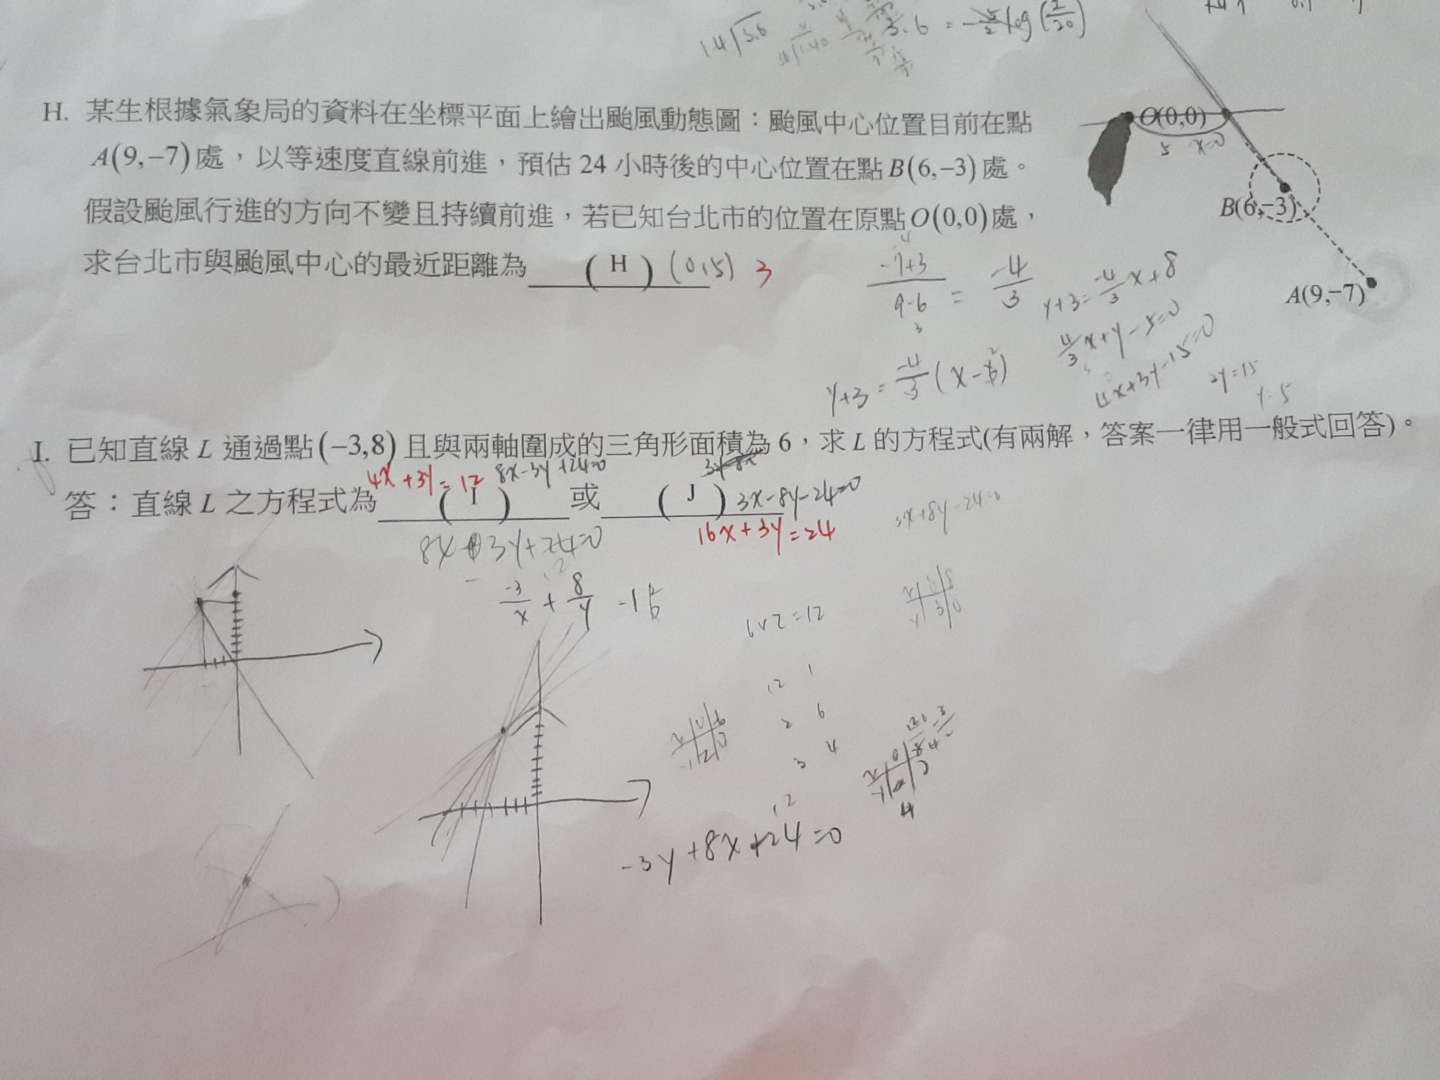 14 3.6
3.6 = -5/2 log(2/20)
H. 某生根據氣象局的資料在坐標平面上繪出颱風動態圖：颱風中心位置目前在點
A(9,−7)處，以等速度直線前進，預估 24 小時後的中心位置在點 B(6,−3)處。
假設颱風行進的方向不變且持續前進，若已知台北市的位置在原點 O(0,0)處，
求台北市與颱風中心的最近距離為 (H) (0,5) 3
O(0,0)
5 x=0
B(6,−3)
A(9,−7)
-7+3/9-6 = -4/3
-4
3
y+3 = -4/3 x+8
4/3x+y-5=0
y+3 = -4/3(x-6)
4x+3y-15=0
y=5
I. 已知直線 L 通過點(−3,8)且與兩軸圍成的三角形面積為 6，求 L 的方程式(有兩解，答案一律用一般式回答)。
4x+3y=12 8x-3y+24=0
答：直線 L 之方程式為 (I) 或 (J) 3x-8y-24=0
16x+3y=24
3x+8y-24=0
-3/x + 8/y
6×2=12
12 1
2 6
3 4
12
4
-3y+8x+24=0